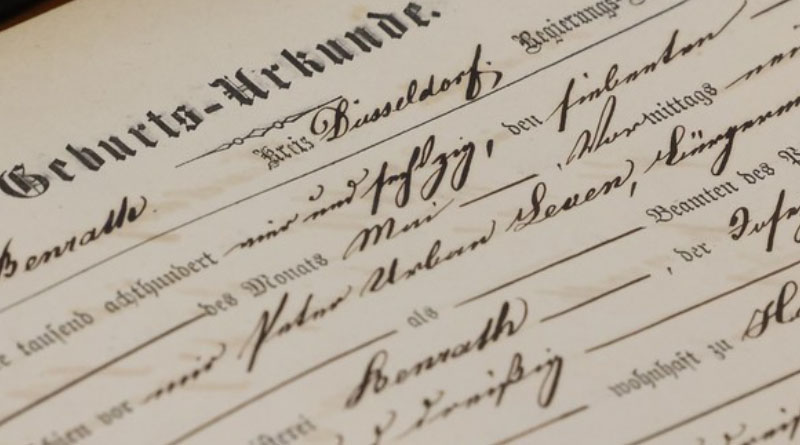 Geburts-Urkunde.
Benrath Kreis Düsseldorf, Regierungs-
tausend achthundert vier und sechszig, den siebenten
des Monats Mai Vormittags neun
vor mir Peter Urban Leven, Bürgerm
als Beamten des P
Benrath, der Josep
dreißig wohnhaft zu